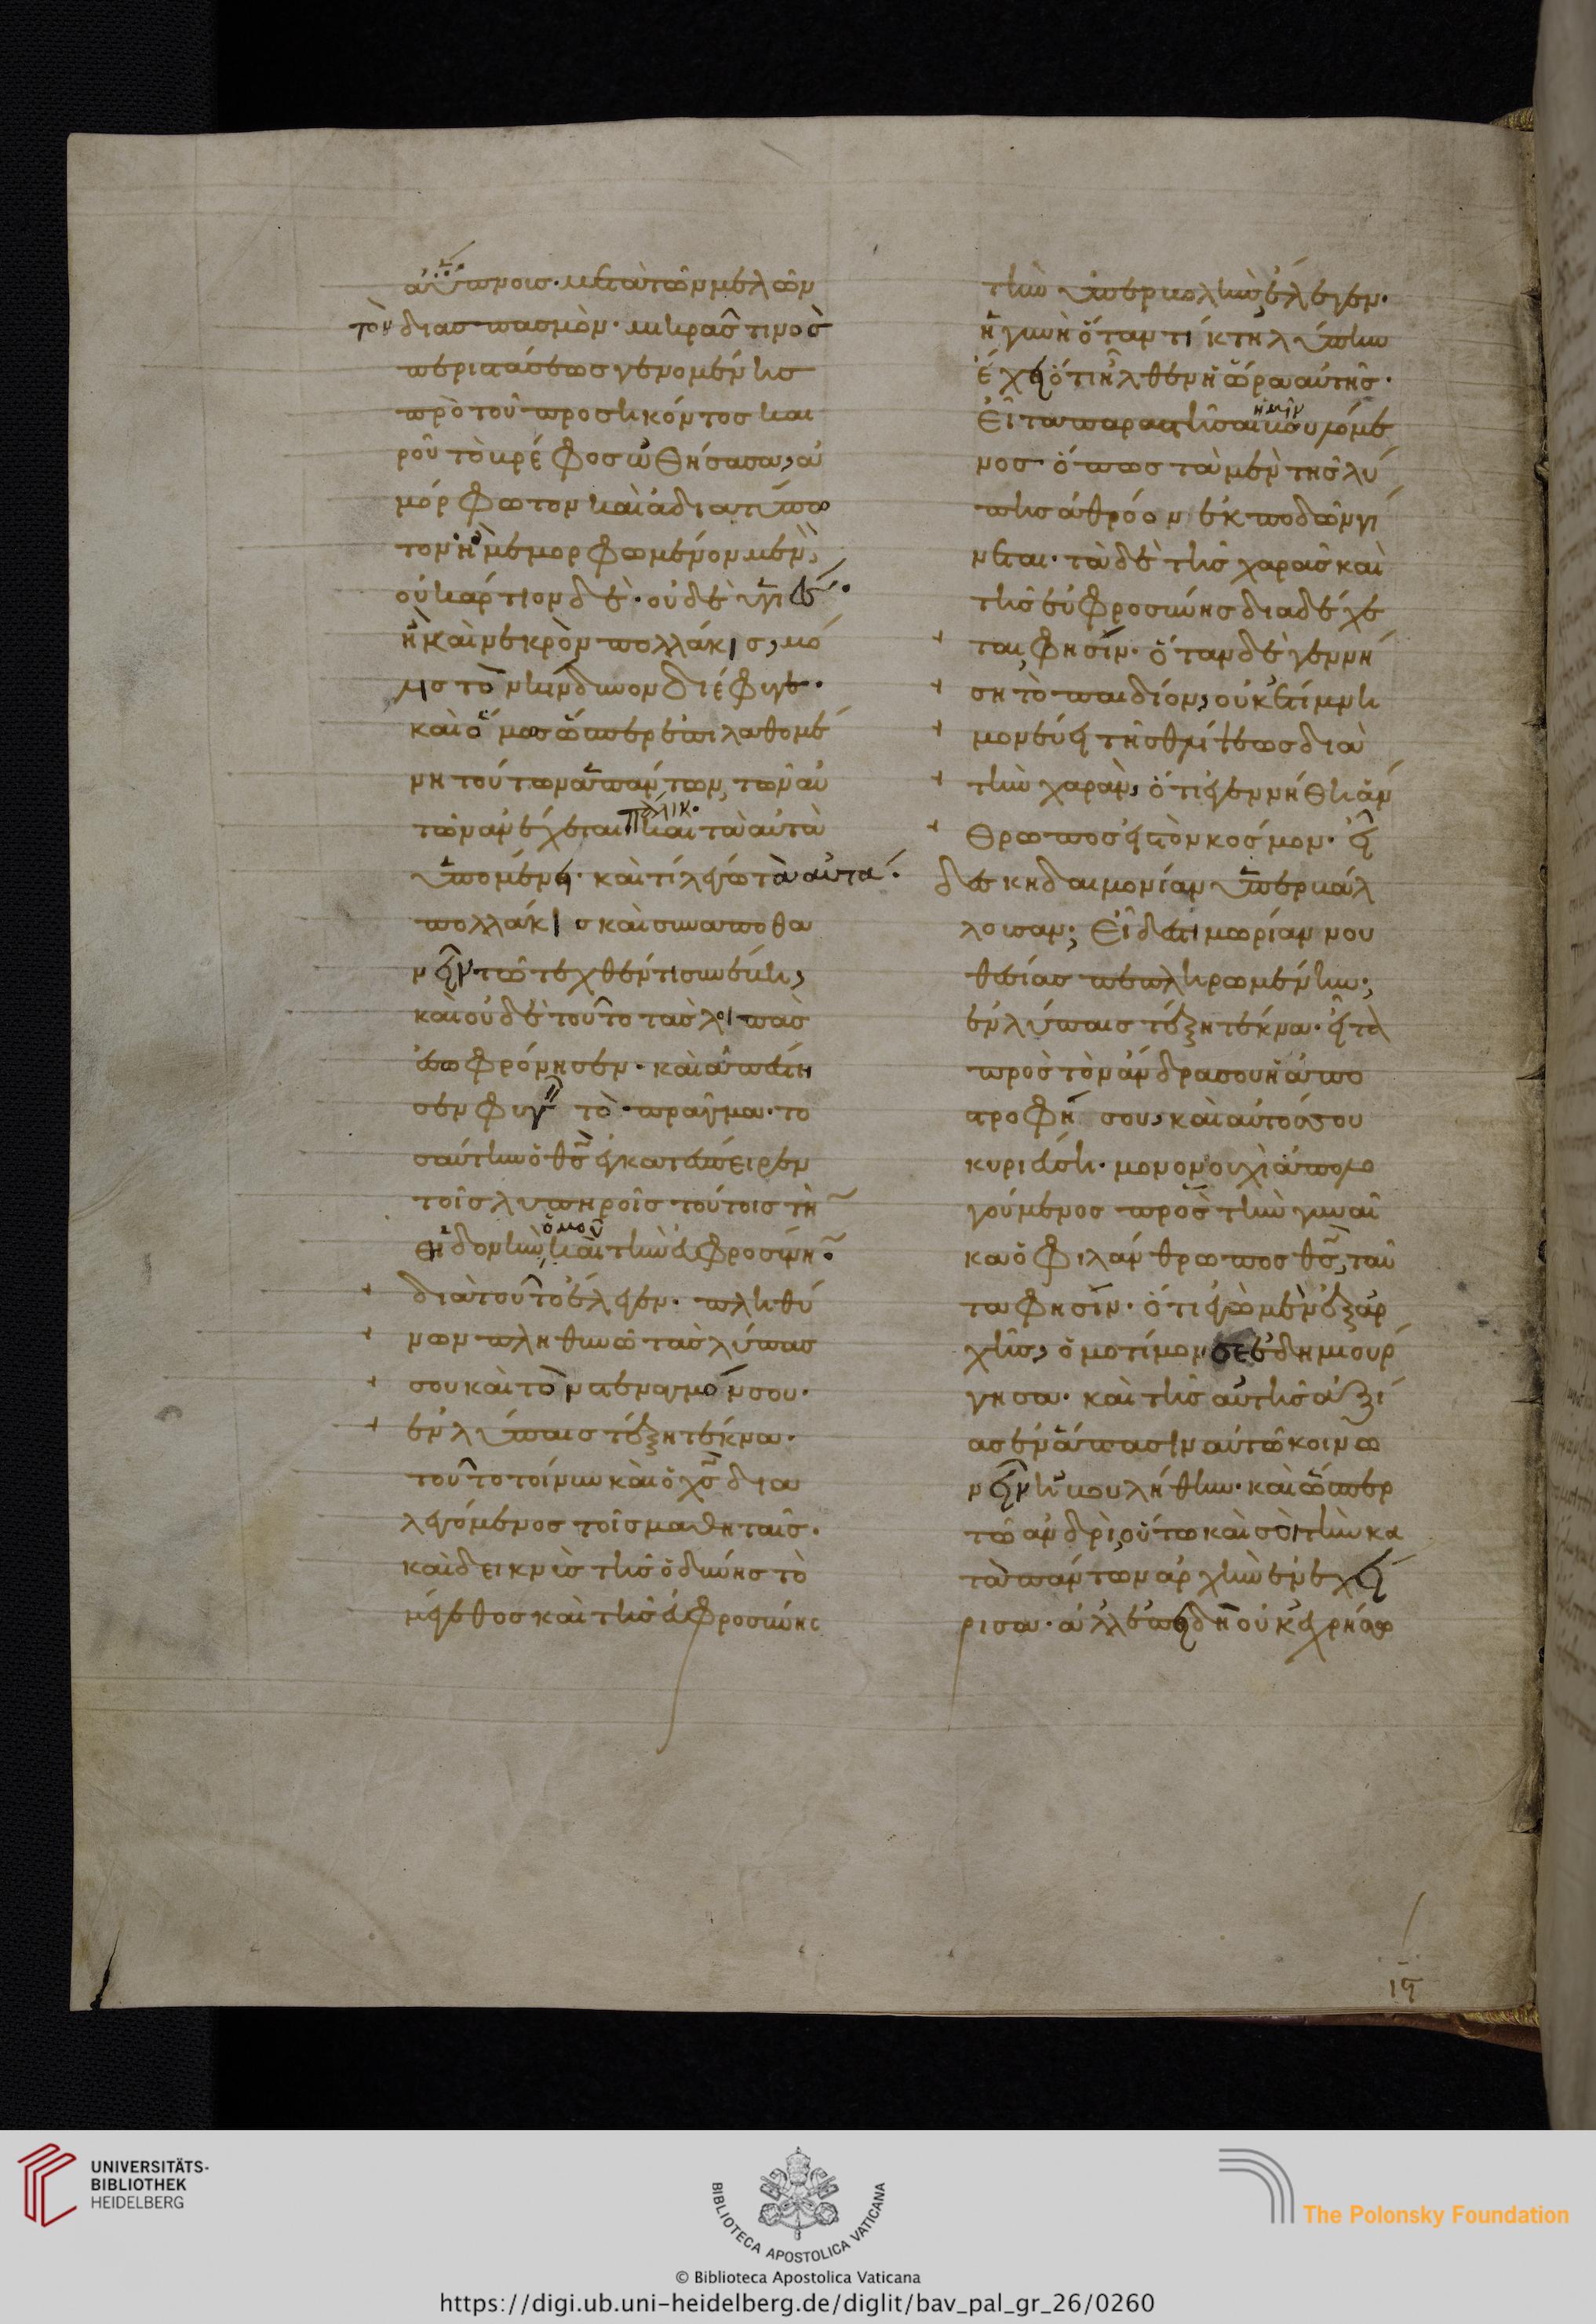 ἀΰπνοισ· μετὰ τῶν μελῶν
τὸν διασπασμὸν· μικρᾶσ τινοσ
περιστάσεωσ γενομένησ
πρὸ τοῦ προσήκοντοσ και
ροῦ τὸ βρέφοσ ὠθήσασα, ἀ
μόρφωτον καὶ ἀδιατύπω
τον ἢ μεμορφωμένον μὲν,
οὐκ ἄρτιον δὲ· οὐδὲ ὑγιὲσ·
ἢ καὶ νεκρὸν πολλάκισ, μό
λισ τὸν κίνδυνον διέφυγε·
καὶ ὅμωσ ὥσπερ ἐπιλαθομέ
νη τούτων ἁπάντων, τῶν αὐ
τῶν ἀνέχεται πάλιν· καὶ τὰ αὐτὰ
ὑπομένει· καὶ τί λέγω τὰ αὐτά·
πολλάκισ καὶ συναποθα
νεῖν τῶ τεχθέντι συνέβη,
καὶ οὐδὲ τοῦτο τὰσ λοιπὰσ
ἐσωφρόνησεν· καὶ ἀπέστη
σεν φυγεῖν τὸ πρᾶγμα· το
σαύτην ὁ θσ ἐγκατέσπειρεν
τοῖσ λυπηροῖσ τούτοισ τὴν
ἡδονὴν ὁμοῦ καὶ τὴν εὐφροσύνην·
διὰ τοῦτο ἔλεγεν· πληθύ
νων πληθυνῶ τὰσ λύπασ
σου καὶ τὸν στεναγμόν σου·
ἐν λύπαισ τέξη τέκνα·
τοῦτο τοίνυν καὶ ὁ χσ δια
λεγόμενοσ τοῖσ μαθηταῖσ·
καὶ δεικνὺσ τῆσ ὀδύνησ τὸ
μέγεθοσ καὶ τῆσ εὐφροσύνησ
τὴν ὑπερβολὴν, ἔλεγεν·
ἡ γυνὴ ὅταν τίκτη λύπην
ἔχει ὅτι ἦλθεν ἡ ὥρα αὐτῆσ·
Εἶτα παραστῆσαι ἡμῖν βουλόμε
νοσ ὅπωσ τὰ μὲν τῆσ λύ
πησ ἀθρόον ἐκποδῶν γί
νεται· τὰ δὲ τῆσ χαρᾶσ καὶ
τῆσ εὐφροσύνησ διαδέχε
ται, φησίν· ὅταν δὲ γεννή
ση τὸ παιδίον, οὐκέτι μνη
μονεύει τῆσ θλίψεωσ διὰ
τὴν χαρὰν, ὅτι ἐγεννήθη ἄν
θρωποσ εἰσ τὸν κοσμον· εἶ
δεσ κηδαιμονίαν ὑπερβάλ
λουσαν; Εἶδεσ τιμωρίαν νου
θεσίασ πεπληρωμένην;
ἐν λύπαισ τέξη τέκνα· εἶτα
πρὸσ τὸν ἄνδρα σου ἡ ἀπο
στροφή σου, καὶ αὐτόσ σου
κυριεύσει· μονονουχὶ ἀπολο
γούμενοσ πρὸσ τὴν γυναῖ
κα ὁ φιλάνθρωποσ θσ, ταῦ
τα φησίν· ὅτι ἐγὼ μὲν ἐξαρ
χῆσ, ὁμότιμόν σε ἐδημιούρ
γησα· καὶ τῆσ αὐτῆσ ἀξί
ασ ἐν ἅπασιν αὐτῶ κοινω
νεῖν ἠβουλήθην· καὶ ὥσπερ
τῶ ἀνδρὶ, οὕτω καὶ σοὶ τὴν κα
τὰ πάντων ἀρχὴν ἐνεχεί
ρισα· ἀλλ' ἐπειδὴ οὐκ ἐχρήσω
ις
UNIVERSITÄTS-
BIBLIOTHEK
HEIDELBERG
BIBLIOTECA APOSTOLICA VATICANA
The Polonsky Foundation
© Biblioteca Apostolica Vaticana
https://digi.ub.uni-heidelberg.de/diglit/bav_pal_gr_26/0260